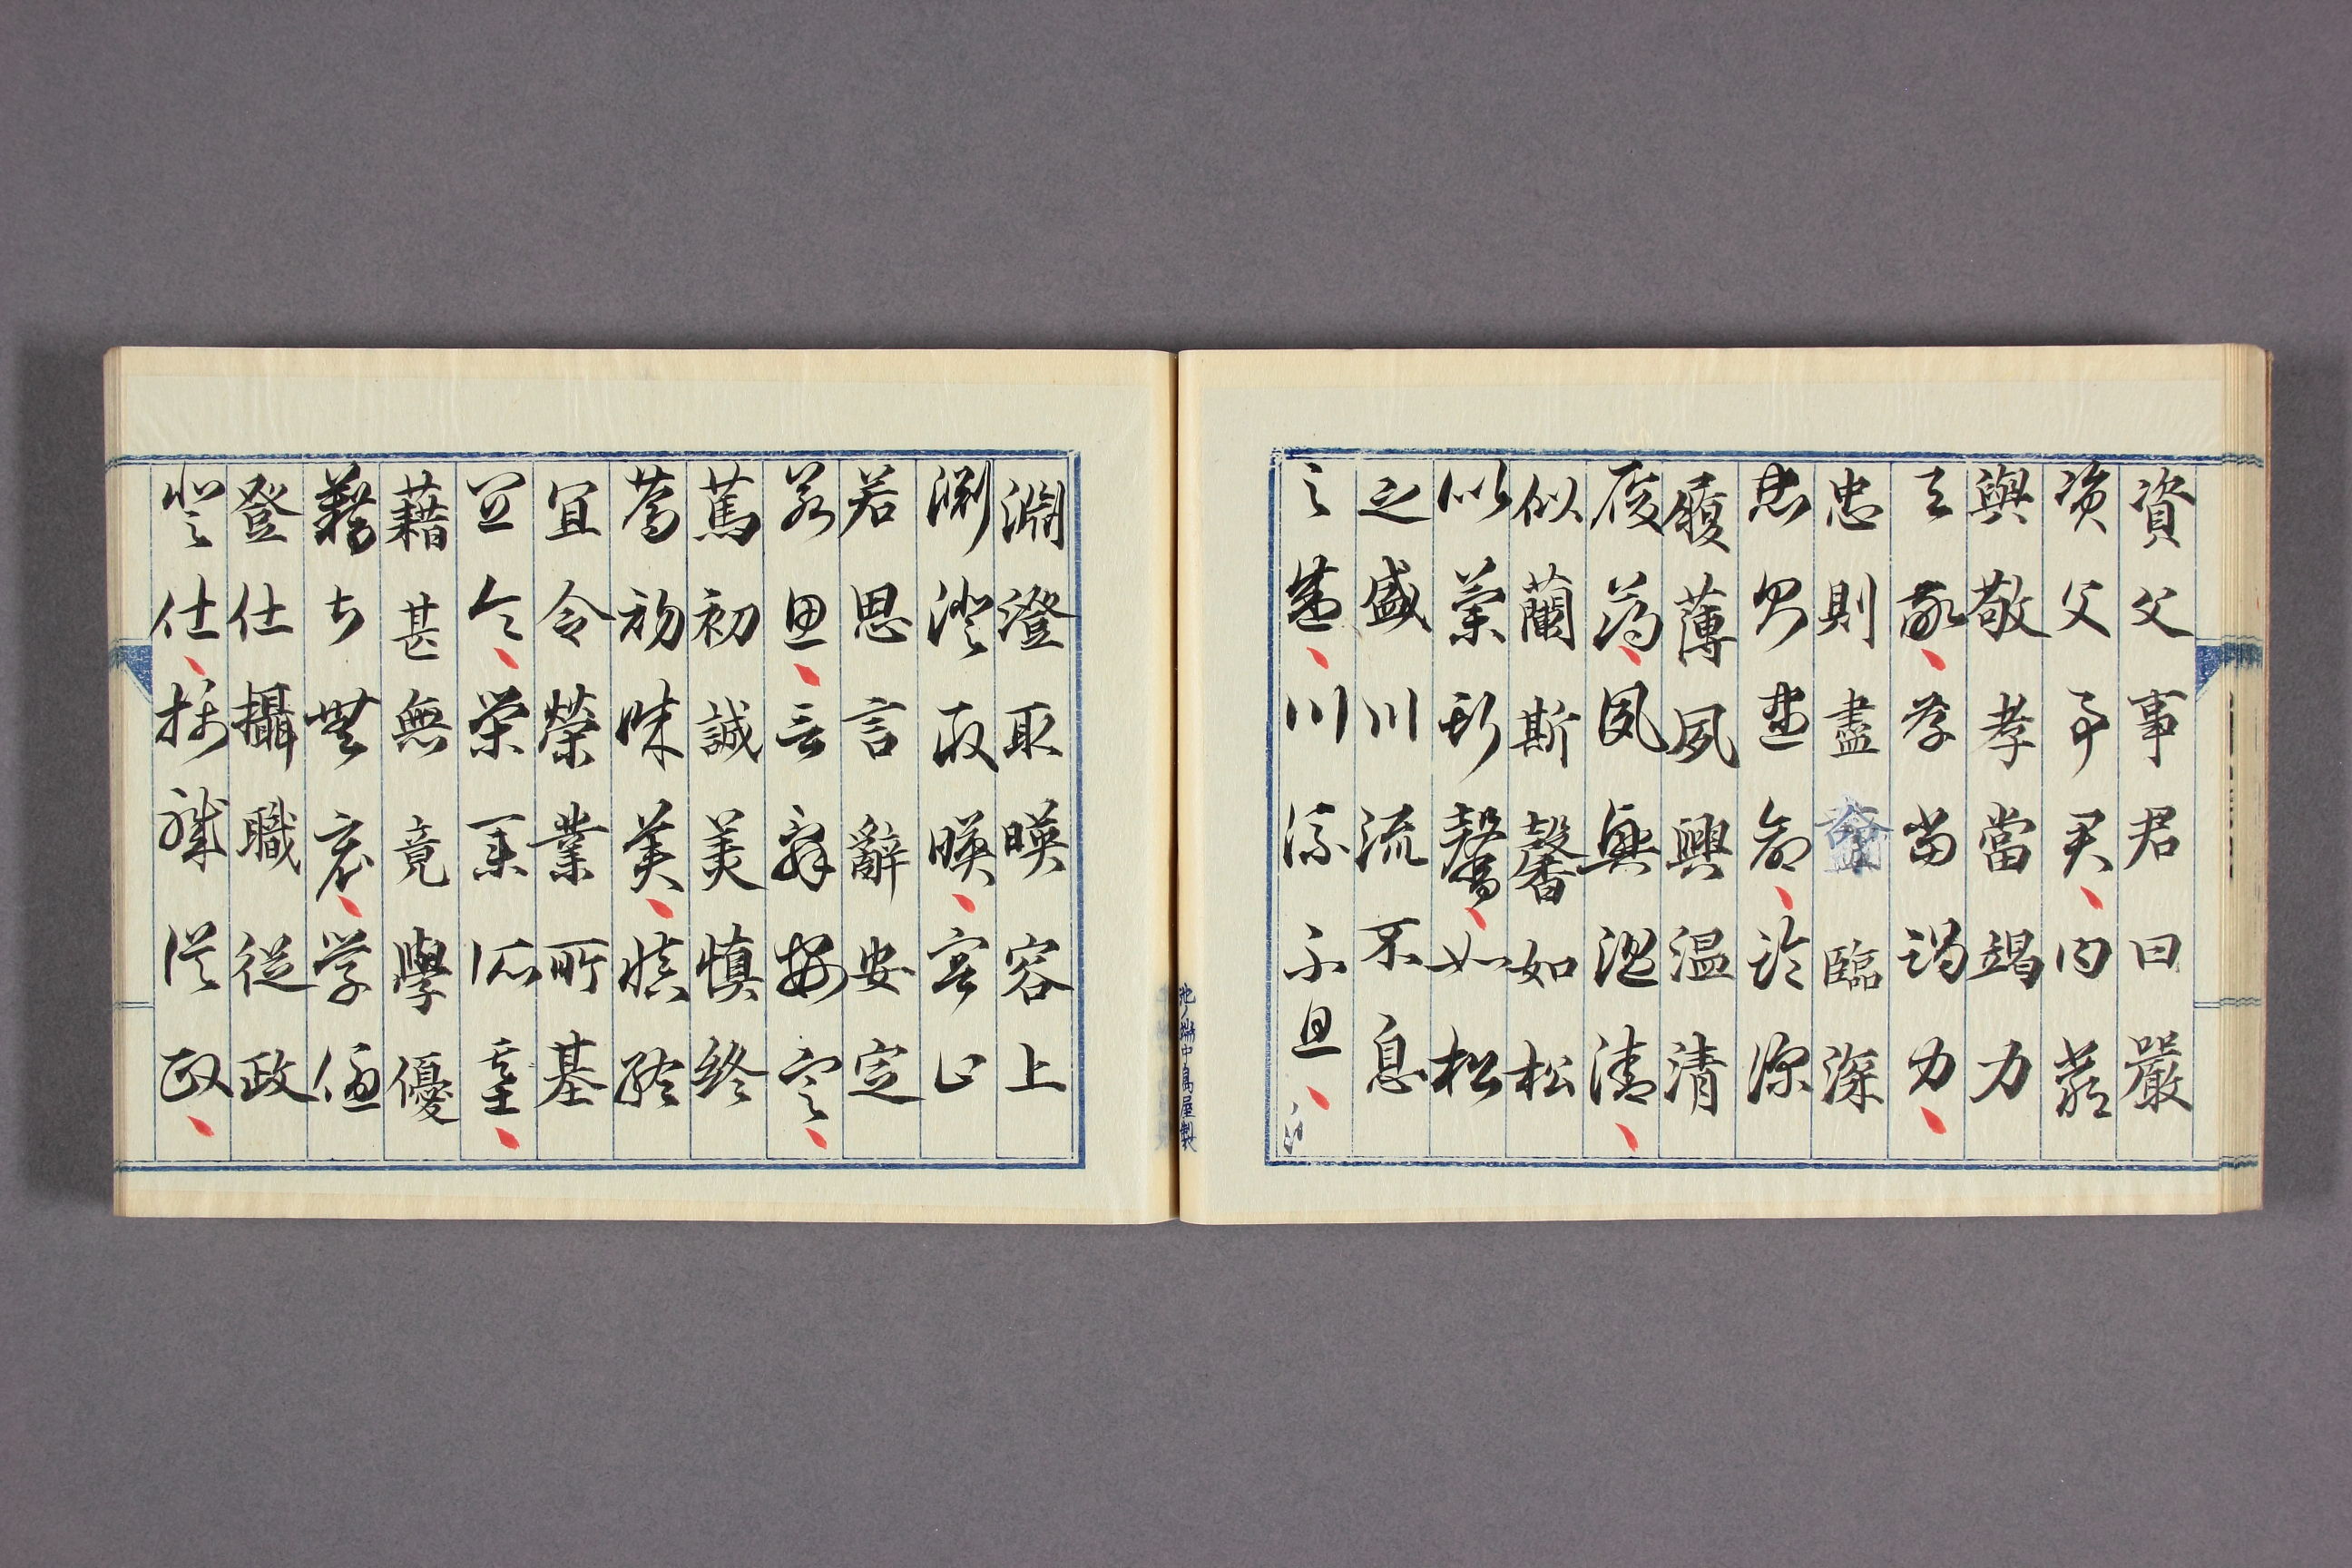 資父事君曰嚴
資父事君曰嚴
與敬孝當竭力
與敬孝當竭力
忠則盡臨深
忠則盡命臨深
履薄夙興温清
履薄夙興温清
似蘭斯馨如松
似蘭斯馨如松
之盛川流不息
之盛川流不息
池ノ端中島屋製
淵澄取暎容止
淵澄取暎容止
若思言辭安定
若思言辭安定
篤初誠美慎終
篤初誠美慎終
宜令榮業所基
宜令榮業所基
藉甚無竟學優
藉甚無竟學優
登仕攝職從政
登仕攝職從政